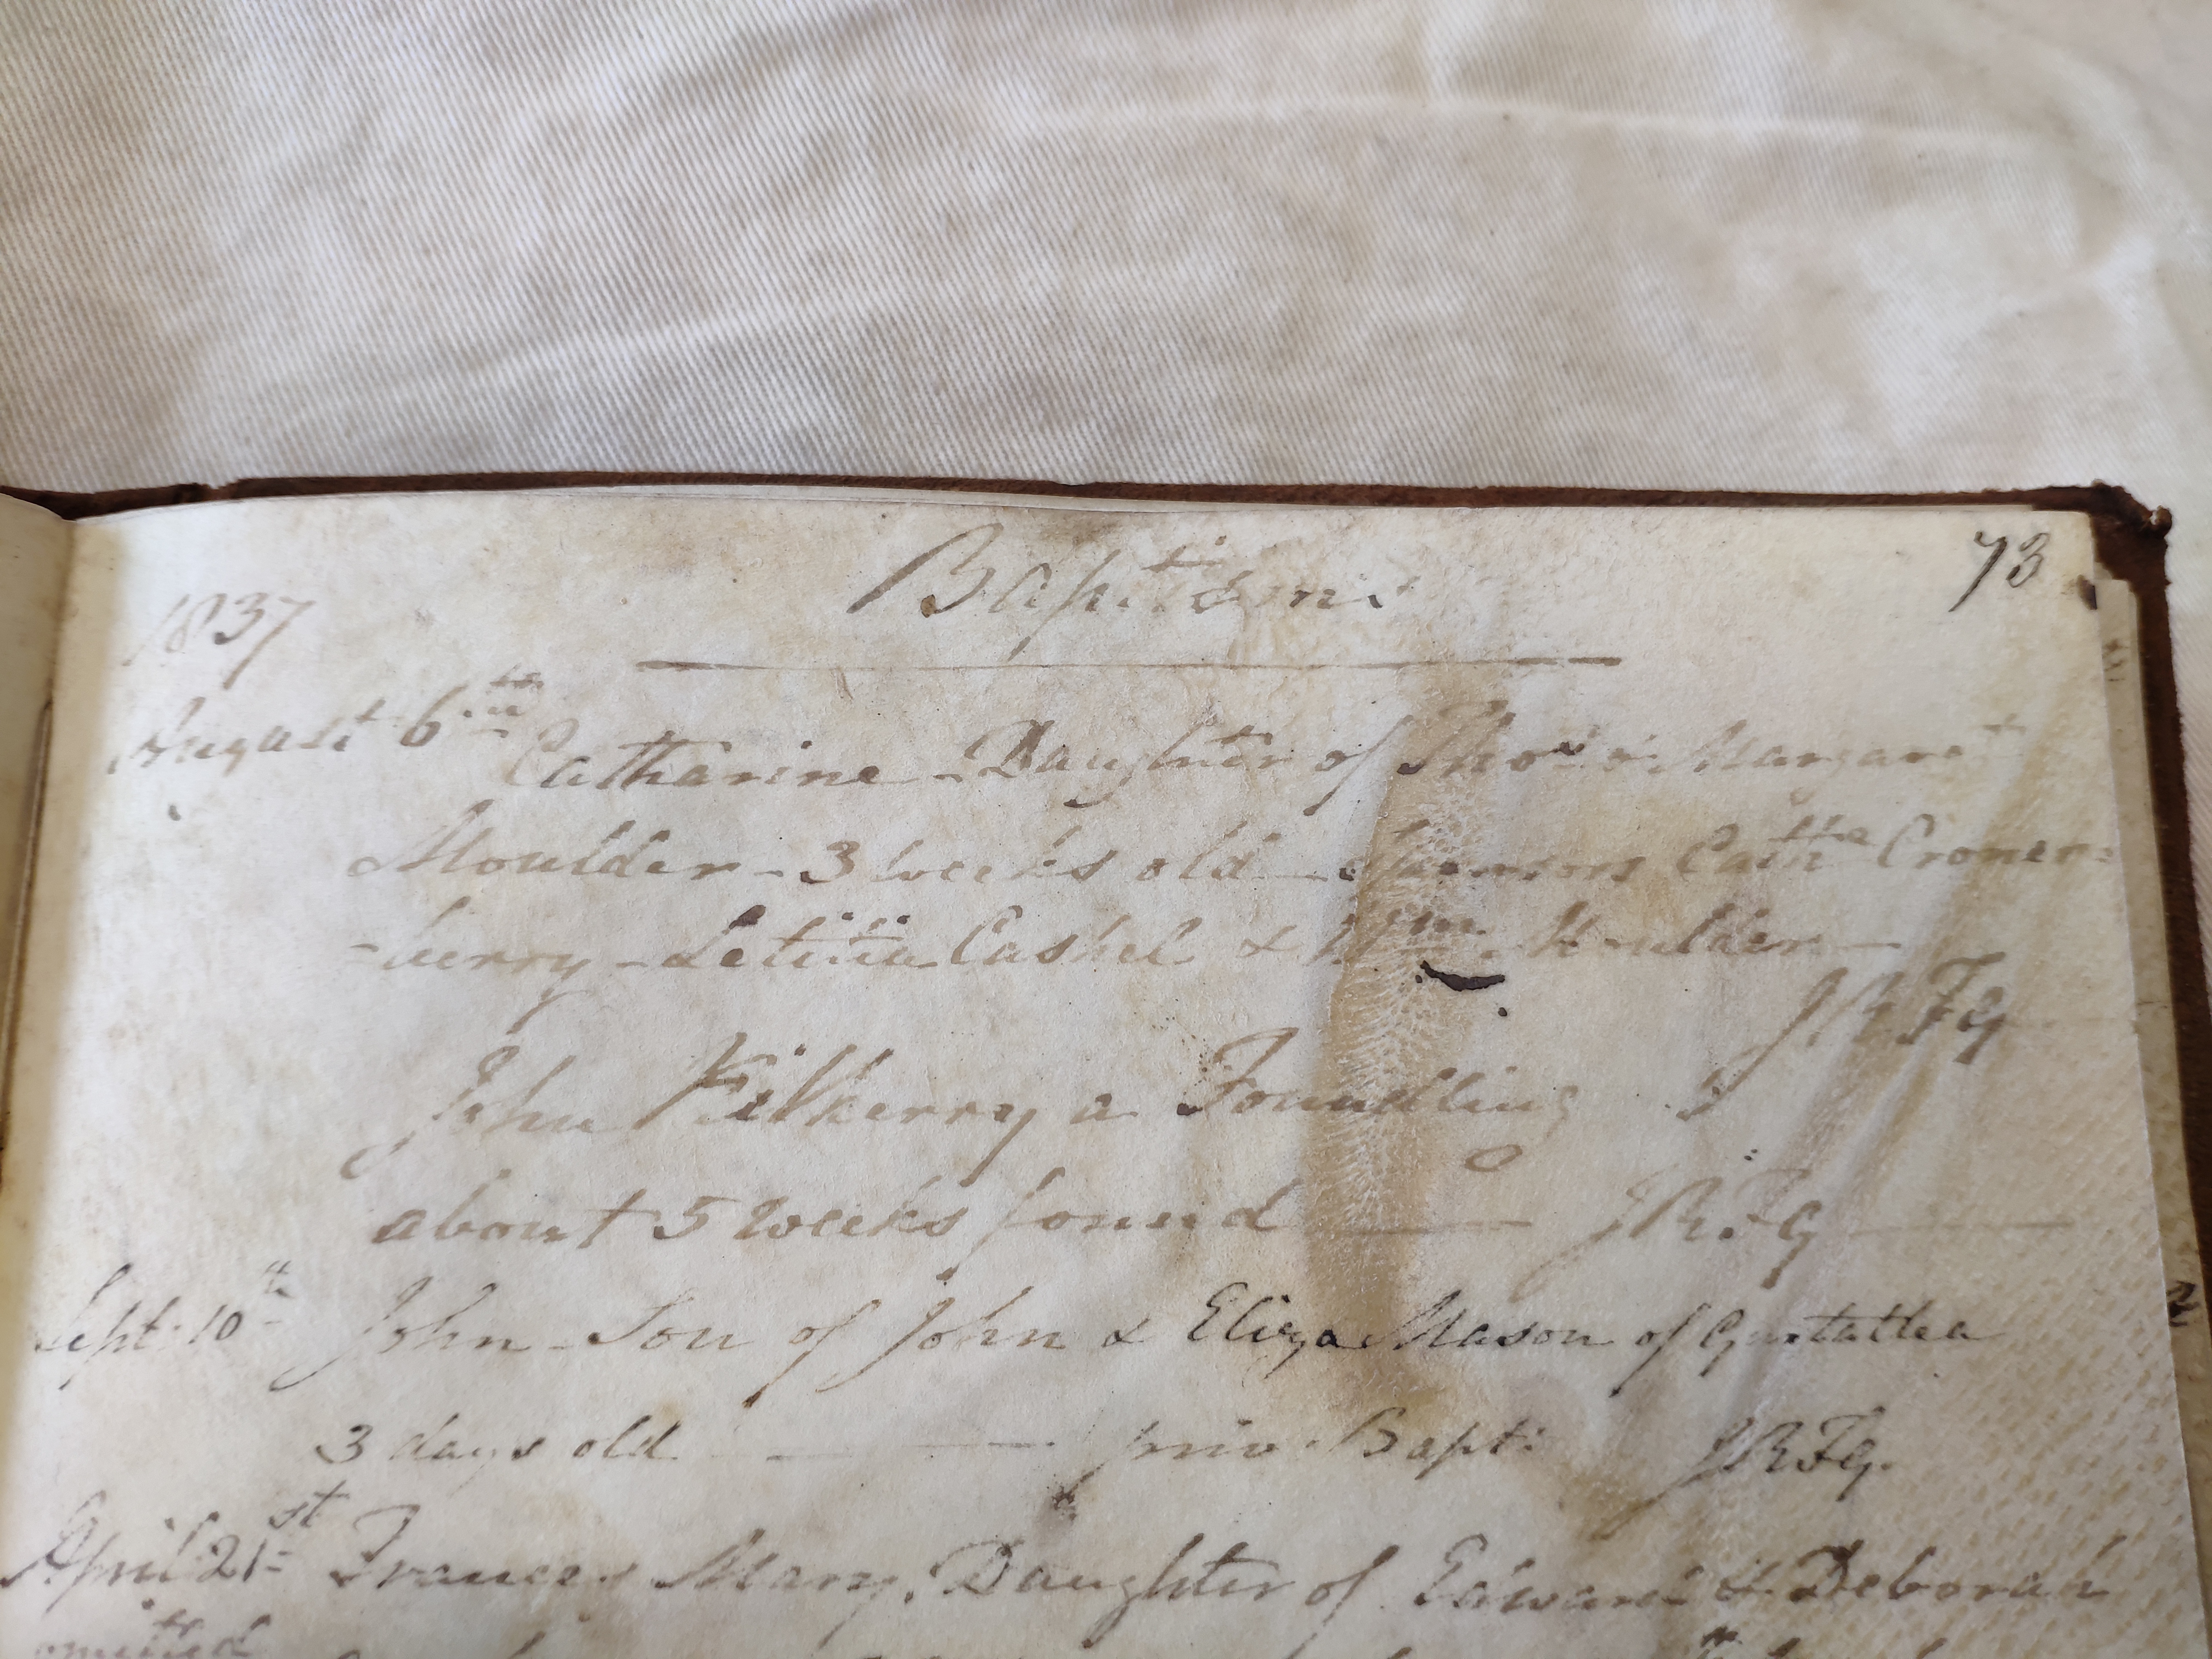 Baptisms
73
1837
August 6th
Catharine - Daughter of Thos & Margaret
Moulder - 3 weeks old - Sponsors Cathne Cronen=
=berry - Letitia Cashel & Wm. Moulder -
JRFG
John Kilkerry a Foundling
about 5 weeks found - JRFG
Sept. 10th John - Son of John & Eliza Mason of
3 days old - priv. Bapt: JRFG.
April 21st Frances Mary, Daughter of Edward & Deborah
omitted